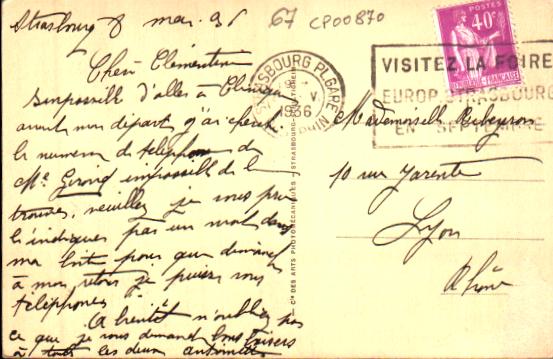 Strasbourg 8 mai 36
67 CP00870
Chère Clémentine
impossible d'aller à
avant mon départ j'ai cherché
le numéro de téléphone de
Mr Giroud impossible de le
trouver, veuillez je vous prie
l'indiquer par un mot dans
ma boîte pour que dimanche
à mon retour je puisse vous
téléphoner.
A bientôt n'oubliez pas
ce que je vous demande bons baisers
à les deux
STRASBOURG PL. GARE
1936
POSTES
40c
RÉPUBLIQUE FRANÇAISE
VISITEZ LA FOIRE
EUROP. STRASBOURG
EN SEPTEMBRE
Mademoiselle
10 rue Jarente
Lyon
Rhône
Cie DES ARTS PHOTOMÉCANIQUES - STRASBOURG